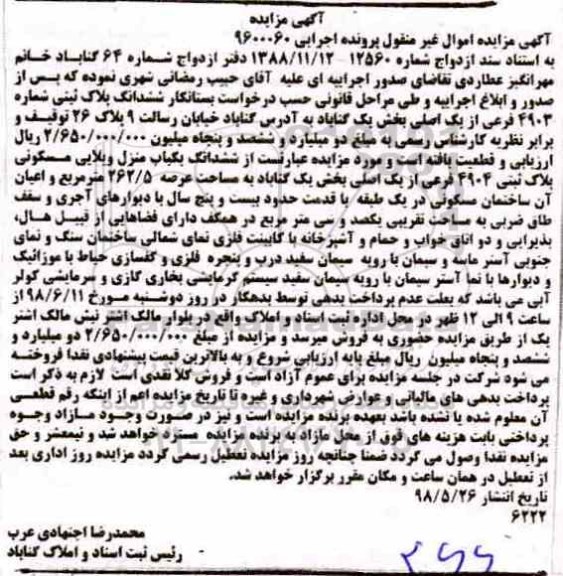 آگهی مزایده
آگهی مزایده اموال غیر منقول پرونده اجرایی ۹۶۰۰۰۶۰
به استناد سند ازدواج شماره ۱۲۵۶۰ - ۱۳۸۸/۱۱/۱۲ دفتر ازدواج شماره ۶۴ گناباد خانم
مهرانگیز عطاردی تقاضای صدور اجراییه ای علیه آقای حبیب رمضانی شهری نموده که پس از
صدور و ابلاغ اجراییه و طی مراحل قانونی حسب درخواست بستانکار ششدانگ پلاک ثبتی شماره
۴۹۰۳ فرعی از یک اصلی بخش یک گناباد به آدرس گناباد خیابان رسالت ۹ پلاک ۲۶ توقیف و
برابر نظریه کارشناس رسمی به مبلغ دو میلیارد و ششصد و پنجاه میلیون ۲/۶۵۰/۰۰۰/۰۰۰ ریال
ارزیابی و قطعیت یافته است و مورد مزایده عبارتست از ششدانگ یکباب منزل ویلایی مسکونی
پلاک ثبتی ۴۹۰۴ فرعی از یک اصلی بخش یک گناباد به مساحت عرصه ۲۶۲/۵ مترمربع و اعیان
آن ساختمان مسکونی در یک طبقه با قدمت حدود بیست و پنج سال با دیوارهای آجری و سقف
طاق ضربی به مساحت تقریبی یکصد و سی متر مربع در همکف دارای فضاهایی از قبیل هال،
پذیرایی و دو اتاق خواب و حمام و آشپزخانه با کابینت فلزی نمای شمالی ساختمان سنگ و نمای
جنوبی آستر ماسه و سیمان با رویه سیمان سفید درب و پنجره فلزی و کفسازی حیاط با موزائیک
و دیوارها با نما آستر سیمان با رویه سیمان سفید سیستم گرمایشی بخاری گازی و سرمایشی کولر
آبی می باشد که بعلت عدم پرداخت بدهی توسط بدهکار در روز دوشنبه مورخ ۹۸/۶/۱۱ از
ساعت ۹ الی ۱۲ ظهر در محل اداره ثبت اسناد و املاک واقع در بلوار مالک اشتر نبش مالک اشتر
یک از طریق مزایده حضوری به فروش میرسد و مزایده از مبلغ ۲/۶۵۰/۰۰۰/۰۰۰ دو میلیارد و
ششصد و پنجاه میلیون ریال مبلغ پایه ارزیابی شروع و به بالاترین قیمت پیشنهادی نقدا فروخته
می شود شرکت در جلسه مزایده برای عموم آزاد است و فروش کلا نقدی است لازم به ذکر است
پرداخت بدهی های مالیاتی و عوارض شهرداری و غیره تا تاریخ مزایده اعم از اینکه رقم قطعی
آن معلوم شده یا نشده باشد بعهده برنده مزایده است و نیز در صورت وجود مازاد وجوه
پرداختی بابت هزینه های فوق از محل مازاد به برنده مزایده مسترد خواهد شد و نیمعشر و حق
مزایده نقدا وصول می گردد ضمنا چنانچه روز مزایده تعطیل رسمی گردد مزایده روز اداری بعد
از تعطیل در همان ساعت و مکان مقرر برگزار خواهد شد.
تاریخ انتشار ۹۸/۵/۲۶
۶۲۲۲
محمدرضا اجتهادی عرب
رئیس ثبت اسناد و املاک گناباد